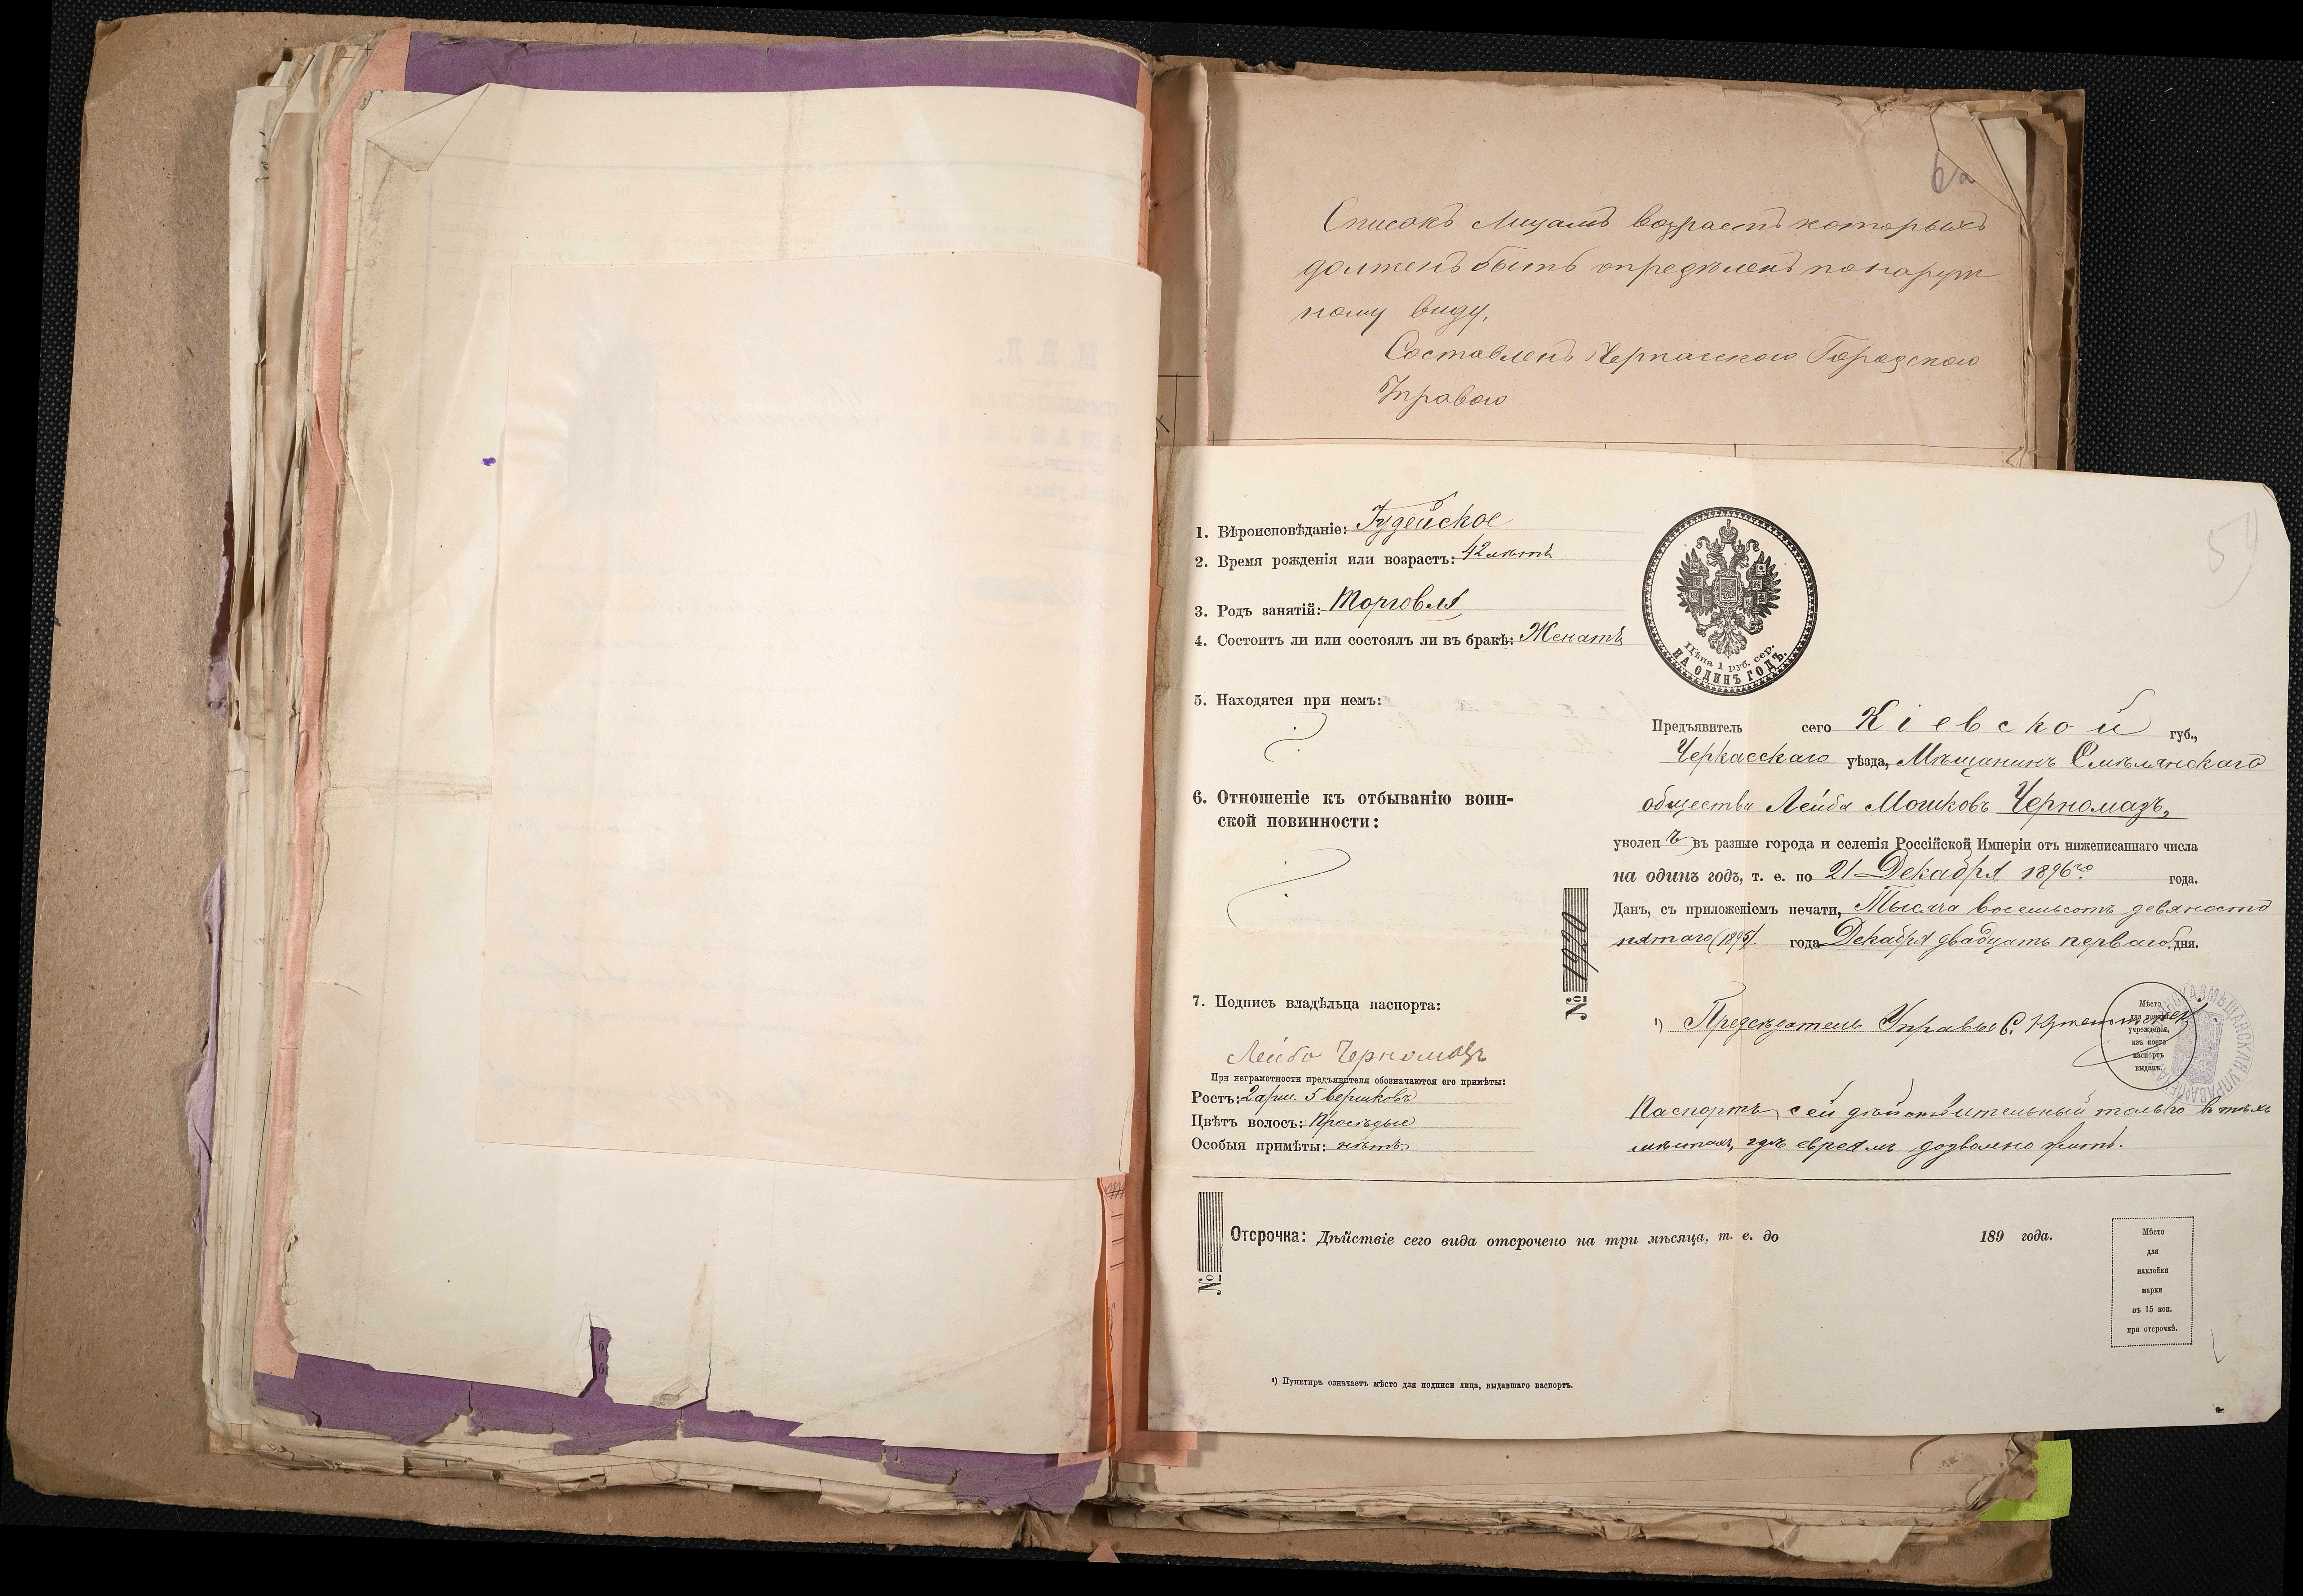 Списокъ Лицамъ возрастъ которыхъ
долженъ быть опредѣленъ по наруж
ному виду.
Составленъ Черкасскою Городскою
Управою
1. Вѣроисповѣданіе: Іудейское
2. Время рожденія или возрастъ: 42 лѣтъ
3. Родъ занятій: Торговля
4. Состоитъ ли или состоялъ ли въ бракѣ: Женатъ
5. Находятся при немъ:
6. Отношеніе къ отбыванію воин-
ской повинности:
7. Подпись владѣльца паспорта:
Лейба Черномазъ
При неграмотности предъявителя обозначаются его примѣты:
Ростъ: 2 арш. 5 вершковъ
Цвѣтъ волосъ: Просѣдые
Особыя примѣты: нѣтъ
Цѣна 1 руб. сер.
НА ОДИНЪ ГОДЪ.
Предъявитель сего Кіевской губ.,
Черкасскаго уѣзда, Мѣщанинъ Смѣлянскаго
общества Лейба Мошковъ Черномазъ,
уволенъ въ разные города и селенія Россійской Имперіи отъ нижеписаннаго числа
на одинъ годъ, т. е. по 21 Декабря 1896го года.
Данъ, съ приложеніемъ печати, Тысяча восемьсотъ девяносто
пятаго (1895) года Декабря двадцать перваго дня.
№ 1920
¹) Предсѣдатель Управы С.
Мѣсто
для печати
учрежденія,
изъ коего
паспортъ
выданъ.
МѢЩАНСКАЯ УПРАВА
Паспортъ сей дѣйствительный только въ тѣхъ
мѣстахъ, гдѣ евреямъ дозволено жить.
№
Отсрочка: Дѣйствіе сего вида отсрочено на три мѣсяца, т. е. до 189 года.
Мѣсто
для
наклейки
марки
въ 15 коп.
при отсрочкѣ.
¹) Пунктиръ означаетъ мѣсто для подписи лица, выдавшаго паспортъ.